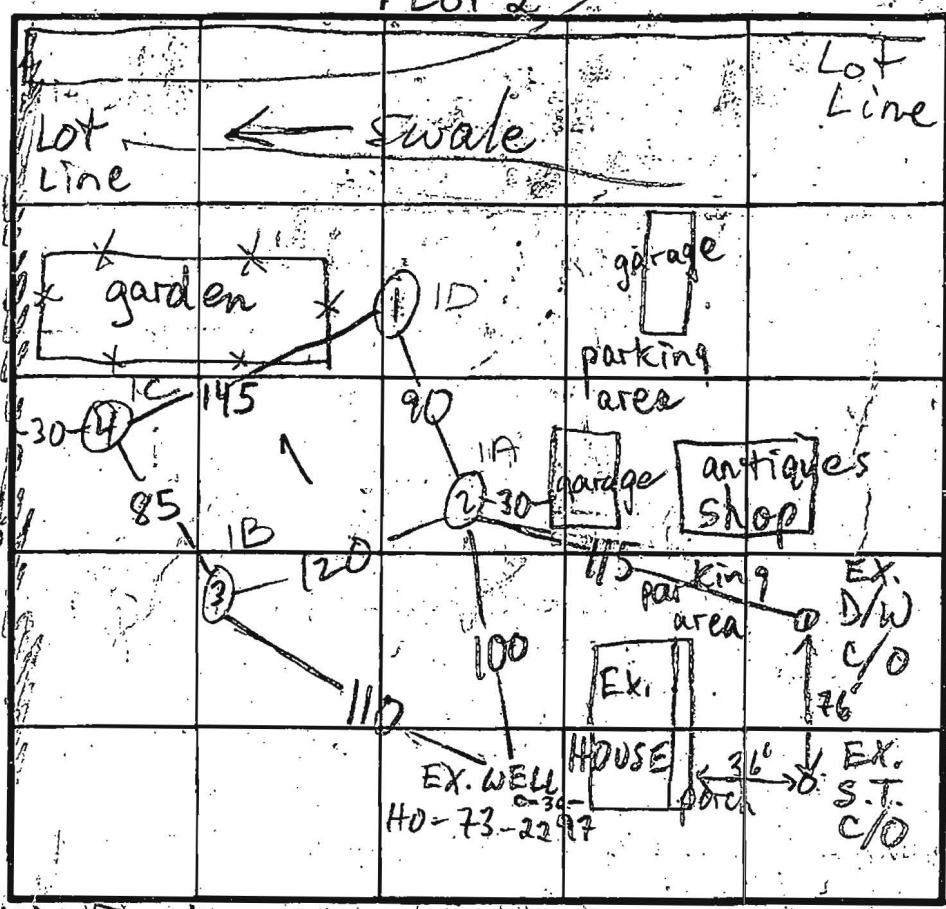 PLOT 2
Lot
Line
Lot
Line
Swale
garden
1
1D
garage
parking
area
1C
145
90
30
4
1A
2
30
garage
antiques
shop
85
1B
3
120
115
parking
area
EX.
D/W
C/O
100
110
Ex.
HOUSE
porch
76'
36'
EX.
S.T.
C/O
EX. WELL
HO-73-2297